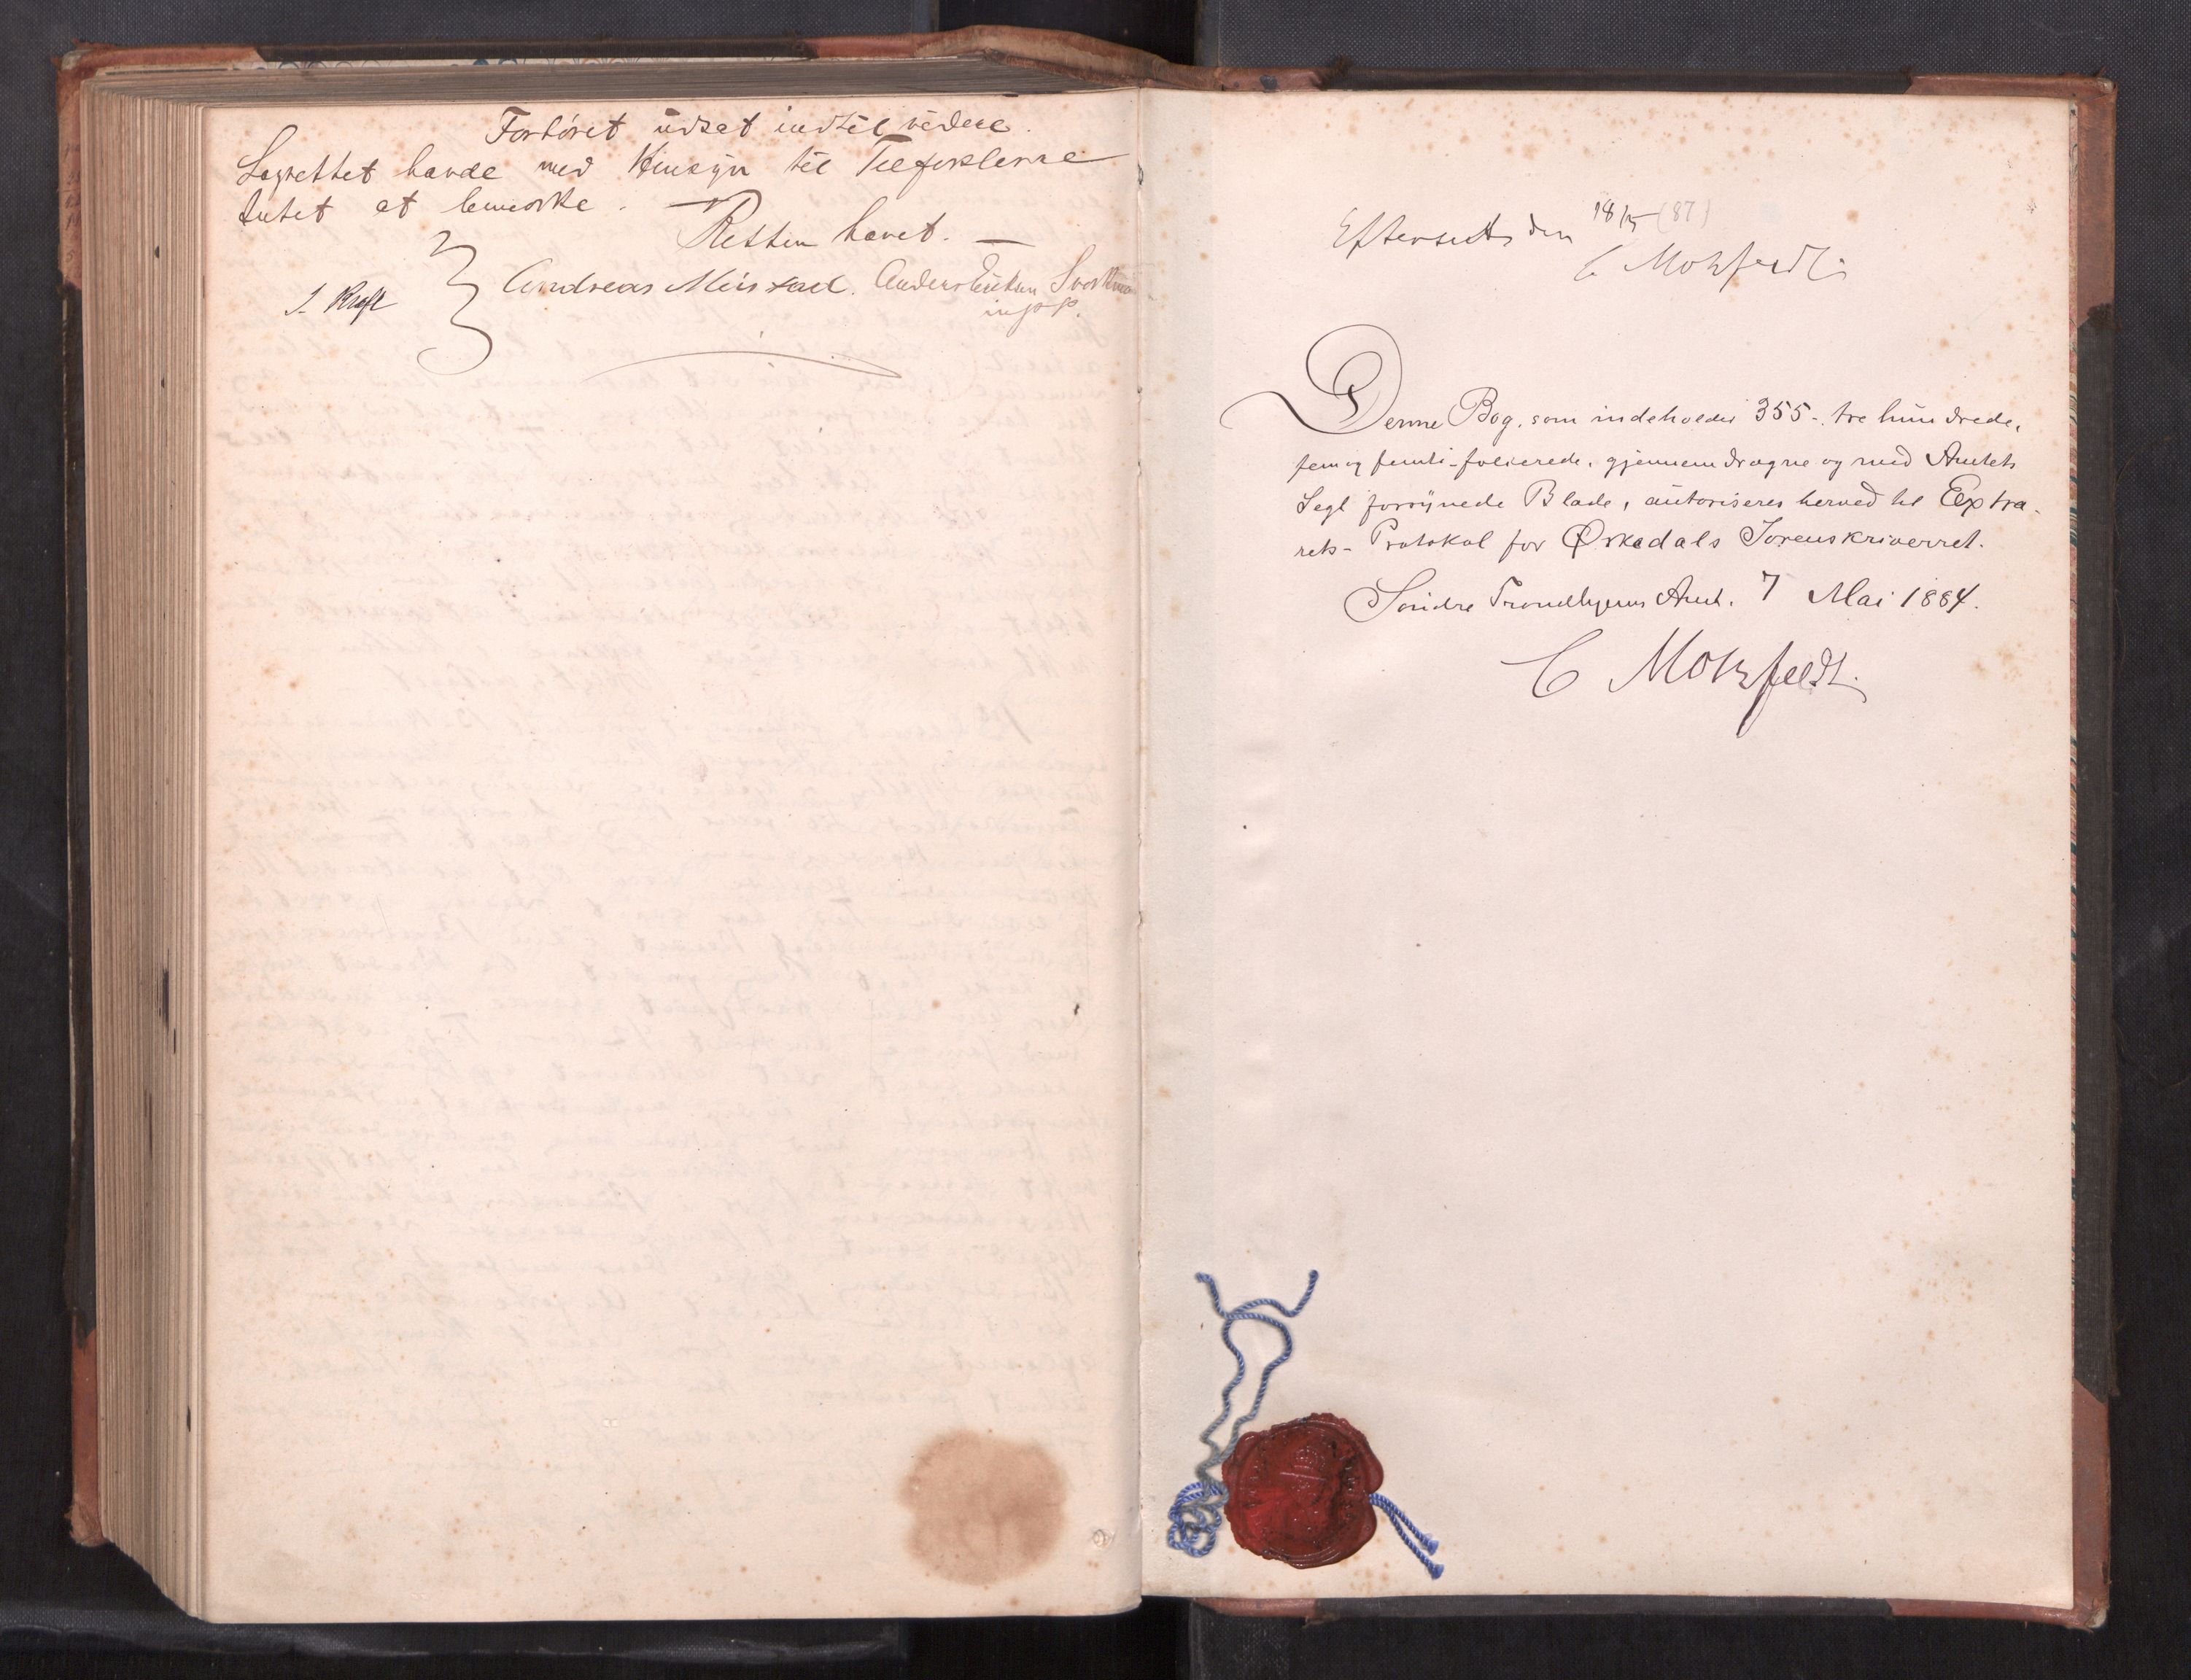 Forhøret udsat indtil videre.
Lagrettet havde med Hensyn til Tilførslerne
Intet at bemærke. —
Retten hævet. —
J. Kraft } Andreas Mestad. Anders Eriksen
Efterseets den 18/5 (87)
C Motzfeldt
Denne Bog, som indeholder 355 - tre hundrede,
fem og femti - folierede, gjennemdragne og med Amtets
Segl forsynede Blade, autoriseres herved til Extra-
rets - Protokol for Ørkedals Sorenskriverret.
Søndre Trondhjems Amt. 7 Mai 1884.
C Motzfeldt.